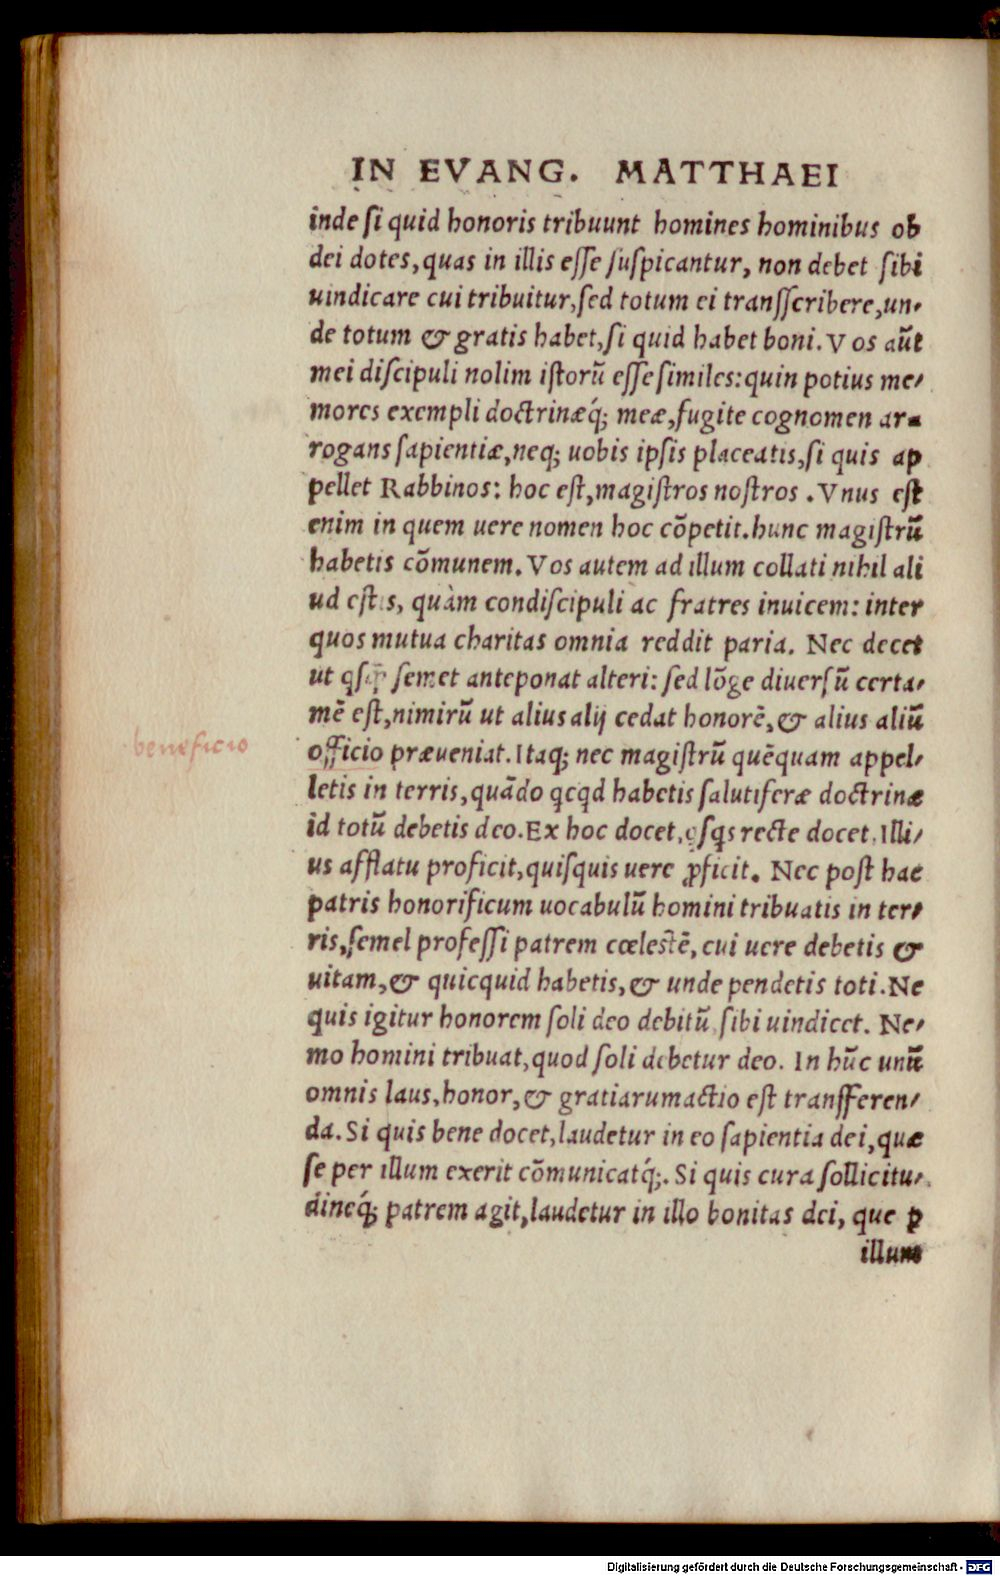 IN EVANG. MATTHAEI
inde ſi quid honoris tribuunt homines hominibus ob
dei dotes, quas in illis eſſe ſuſpicantur, non debet ſibi
uindicare cui tribuitur, ſed totum ei transſcribere, un⸗
de totum & gratis habet, ſi quid habet boni. Vos aūt
mei diſcipuli nolim iſtorū eſſe ſimiles: quin potius me⸗
mores exempli doctrinæq́; meæ, fugite cognomen ar⸗
rogans ſapientiæ, neq; uobis ipſis placeatis, ſi quis ap
pellet Rabbinos: hoc eſt, magiſtros noſtros. Vnus eſt
enim in quem uere nomen hoc cōpetit. hunc magiſtrū
habetis cōmunem. Vos autem ad illum collati nihil ali
ud eſtis, quàm condiſcipuli ac fratres inuicem: inter
quos mutua charitas omnia reddit paria. Nec decet
ut ſemet anteponat alteri: ſed lōge diuerſū certa⸗
mē eſt, nimirū ut alius alij cedat honorē, & alius aliū
beneficio
officio præueniat. Itaq; nec magiſtrū quēquam appel⸗
letis in terris, quādo qcqd habetis ſalutiferæ doctrinæ
id totū debetis deo. Ex hoc docet, qſqs recte docet. Illi⸗
us afflatu proficit, quiſquis uere ꝓficit. Nec poſt hac
patris honorificum uocabulū homini tribuatis in ter⸗
ris, ſemel profeſſi patrem cœleſtē, cui uere debetis &
uitam, & quicquid habetis, & unde pendetis toti. Ne
quis igitur honorem ſoli deo debitū ſibi uindicet. Ne⸗
mo homini tribuat, quod ſoli debetur deo. In hūc unū
omnis laus, honor, & gratiarumactio eſt transferen⸗
da. Si quis bene docet, laudetur in eo ſapientia dei, quæ
ſe per illum exerit cōmunicatq́;. Si quis cura ſollicitu⸗
dineq́; patrem agit, laudetur in illo bonitas dei, que ꝑ
illum
Digitalisierung gefördert durch die Deutsche Forschungsgemeinschaft - DFG